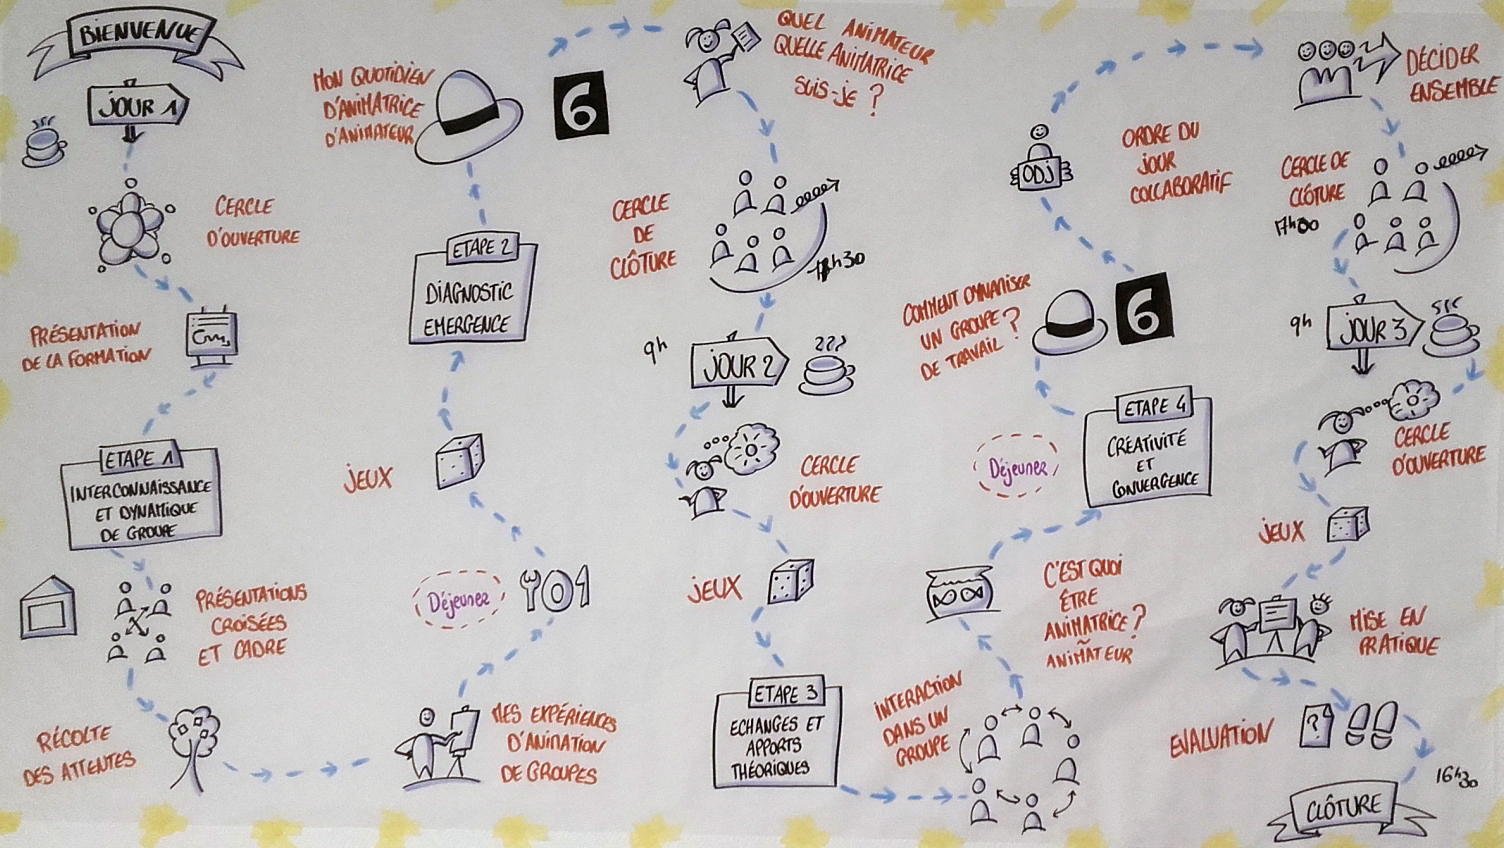 BIENVENUE
JOUR 1
CERCLE
D'OUVERTURE
PRÉSENTATION
DE LA FORMATION
ETAPE 1
INTERCONNAISSANCE
ET DYNAMIQUE
DE GROUPE
PRÉSENTATIONS
CROISÉES
ET CADRE
RÉCOLTE
DES ATTENTES
MES EXPÉRIENCES
D'ANIMATION
DE GROUPES
Déjeuner
JEUX
ETAPE 2
DIAGNOSTIC
EMERGENCE
MON QUOTIDIEN
D'ANIMATRICE
D'ANIMATEUR
6
QUEL ANIMATEUR
QUELLE ANIMATRICE
SUIS-JE ?
CERCLE
DE
CLÔTURE
9h
JOUR 2
CERCLE
D'OUVERTURE
JEUX
ETAPE 3
ECHANGES ET
APPORTS
THÉORIQUES
INTERACTION
DANS UN
GROUPE
C'EST QUOI
ÊTRE
ANIMATRICE ?
~
ANIMATEUR
Déjeuner
ETAPE 4
CRÉATIVITÉ
ET
CONVERGENCE
COMMENT DYNAMISER
UN GROUPE ?
DE TRAVAIL
6
ODJ
ORDRE DU
JOUR
COLLABORATIF
DÉCIDER
ENSEMBLE
CERCLE DE
CLÔTURE
17h00
9h
JOUR 3
CERCLE
D'OUVERTURE
JEUX
MISE EN
PRATIQUE
EVALUATION
?
16h30
CLÔTURE